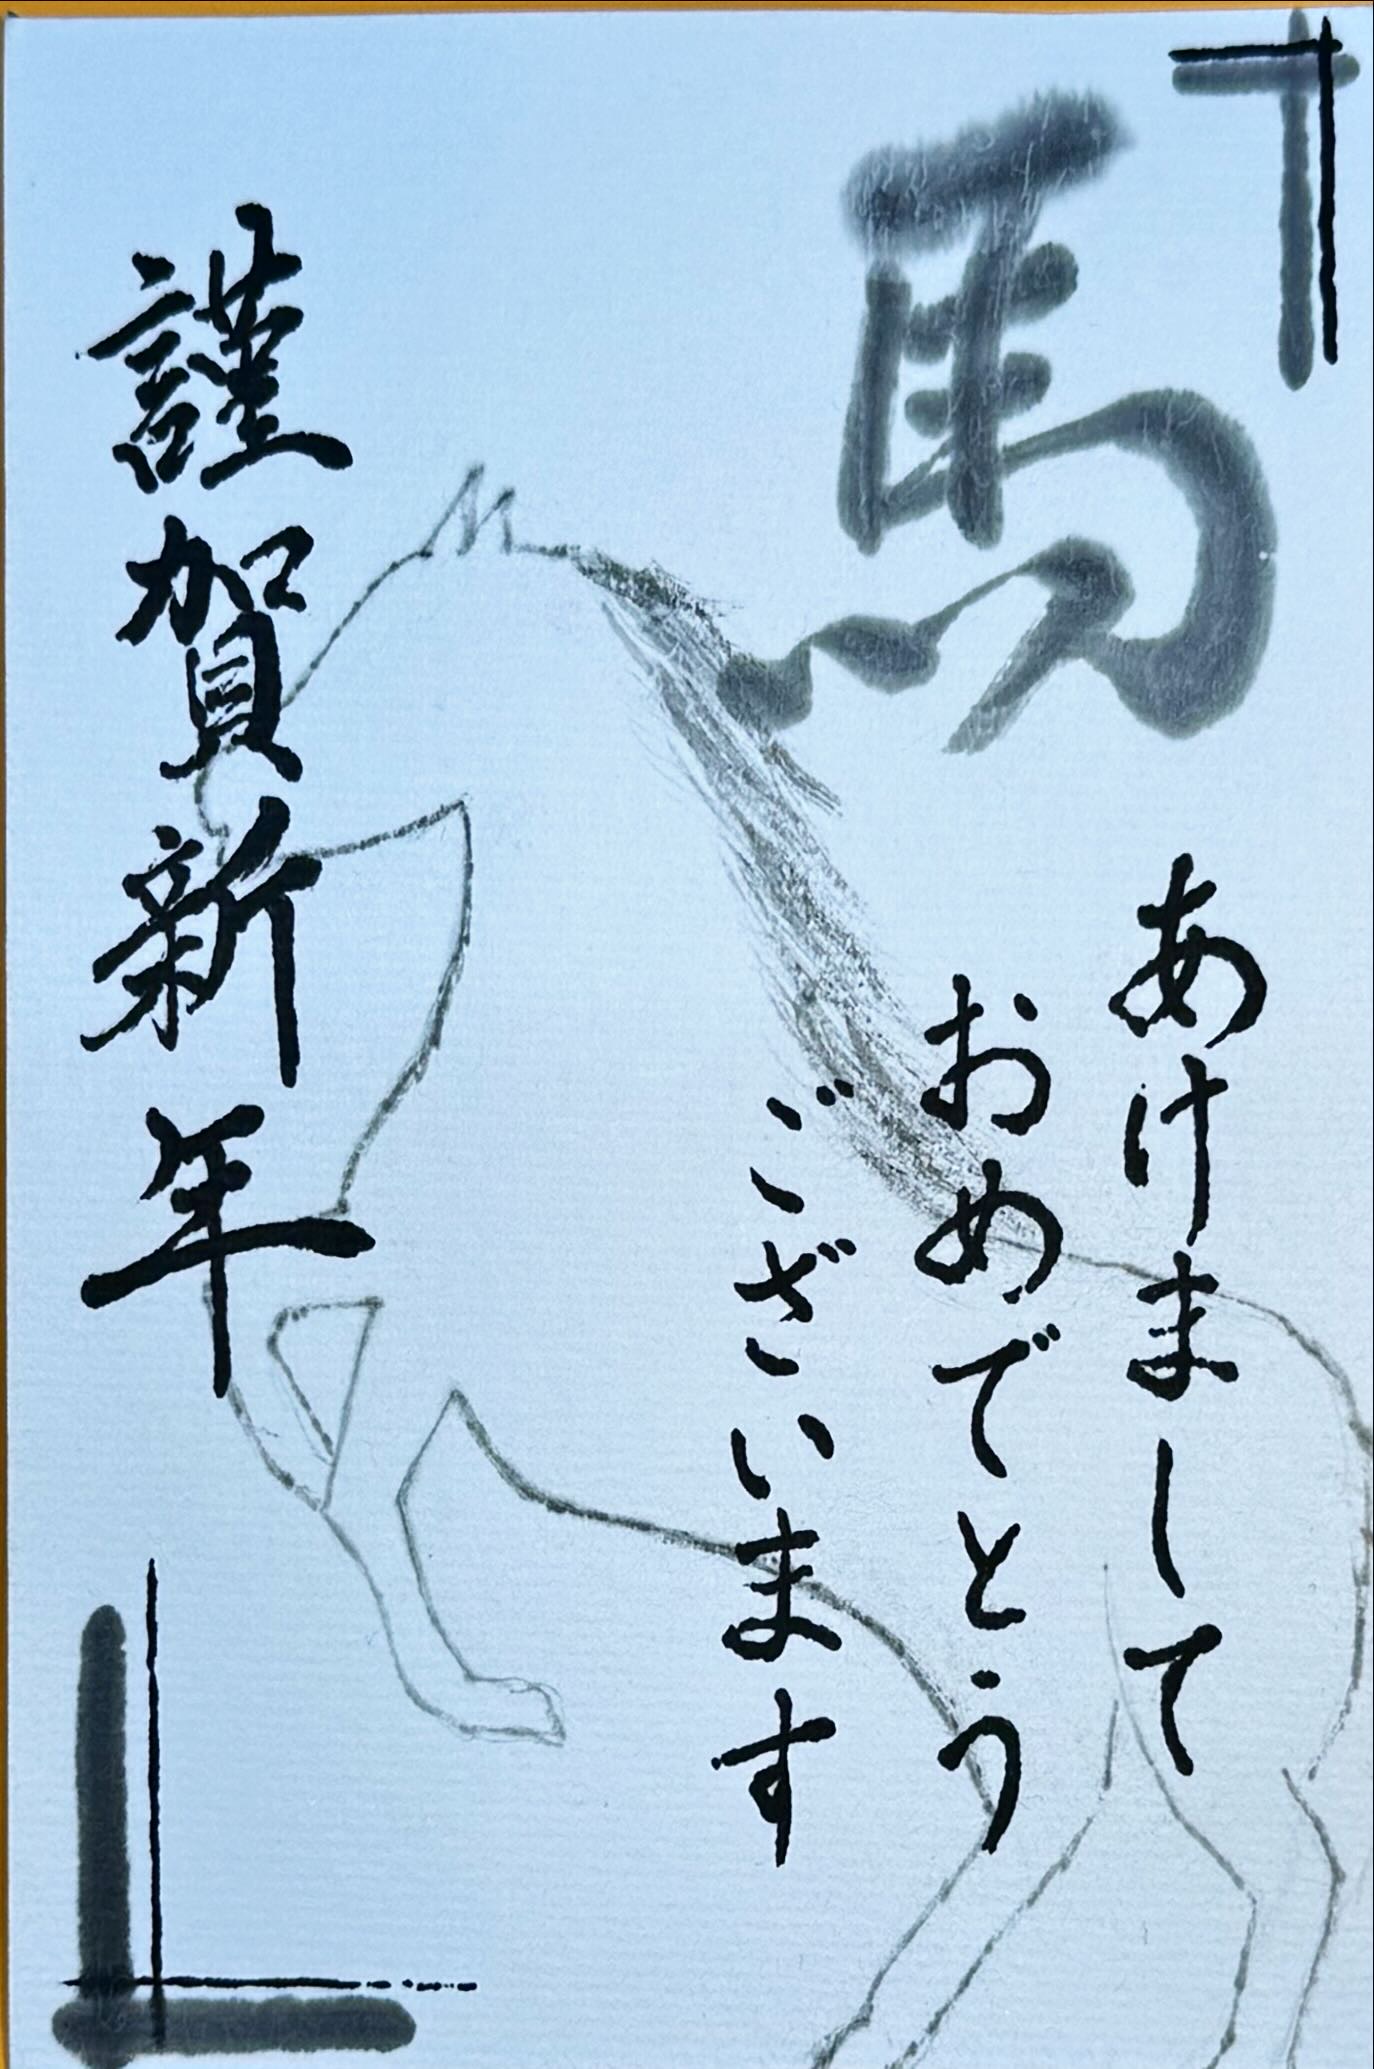 馬
あけまして
おめでとう
ございます
謹賀新年